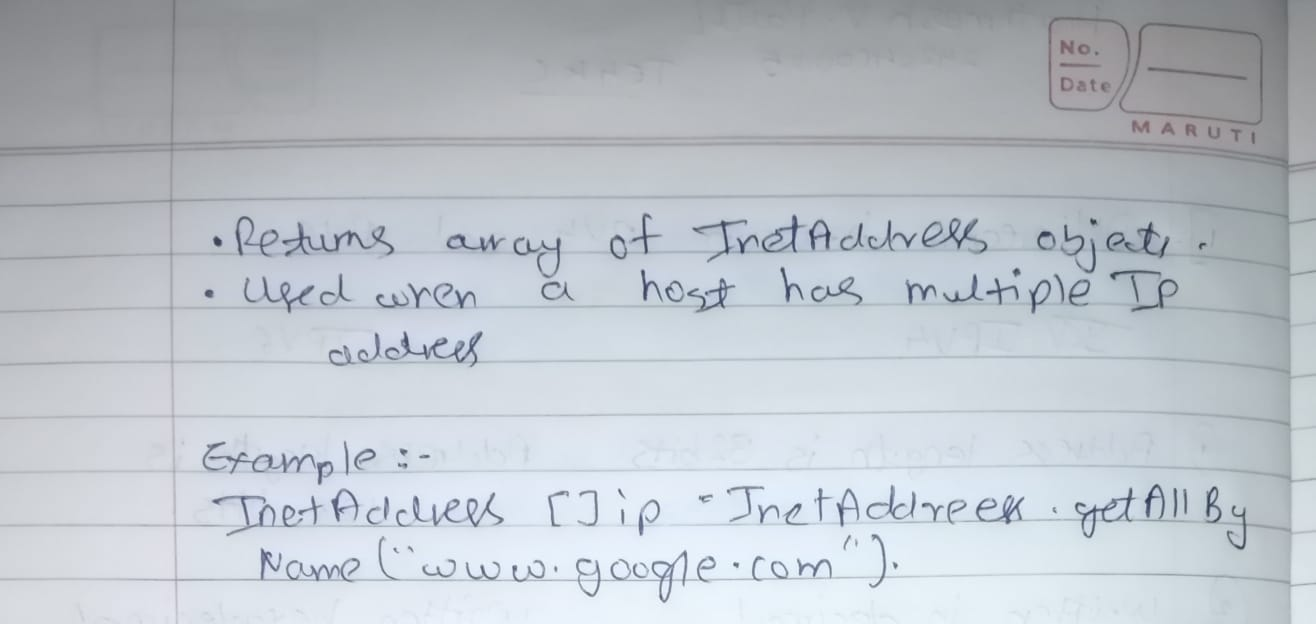 No.
Date
MARUTI
• Returns array of InetAddress objects.
• Used when a host has multiple IP
address
Example :-
InetAddress [] ip = InetAddress . getAllBy
Name ("www.google.com").